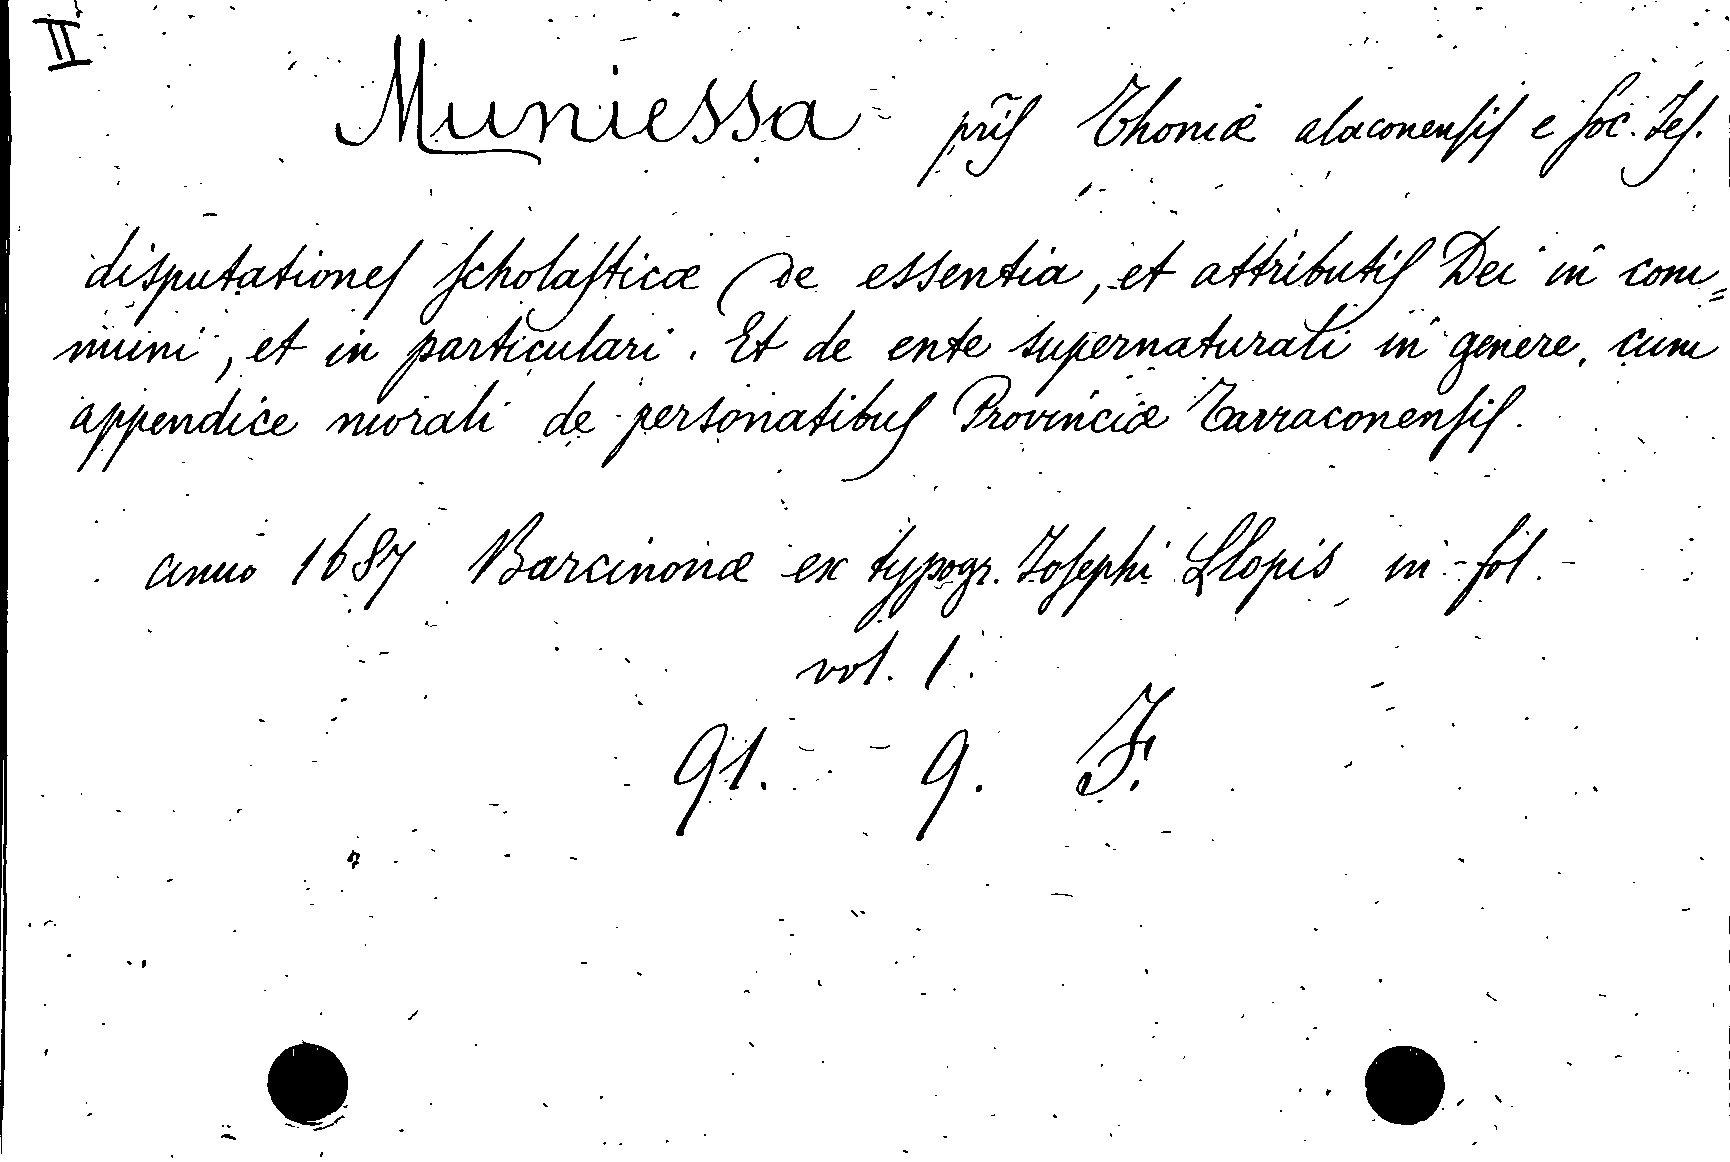 II
Muniessa pr̃is Thomæ alaconensis e Soc. Jes.
disputationes scholasticæ de essentia, et attributis Dei in com=
muni, et in particulari. Et de ente supernaturali in genere, cum
appendice morali de personatibus Provinciæ Tarraconensis.
anno 1687 Barcinonæ ex typogr. Josephi Llopis in-fol.
vol. 1.
91. 9. F.